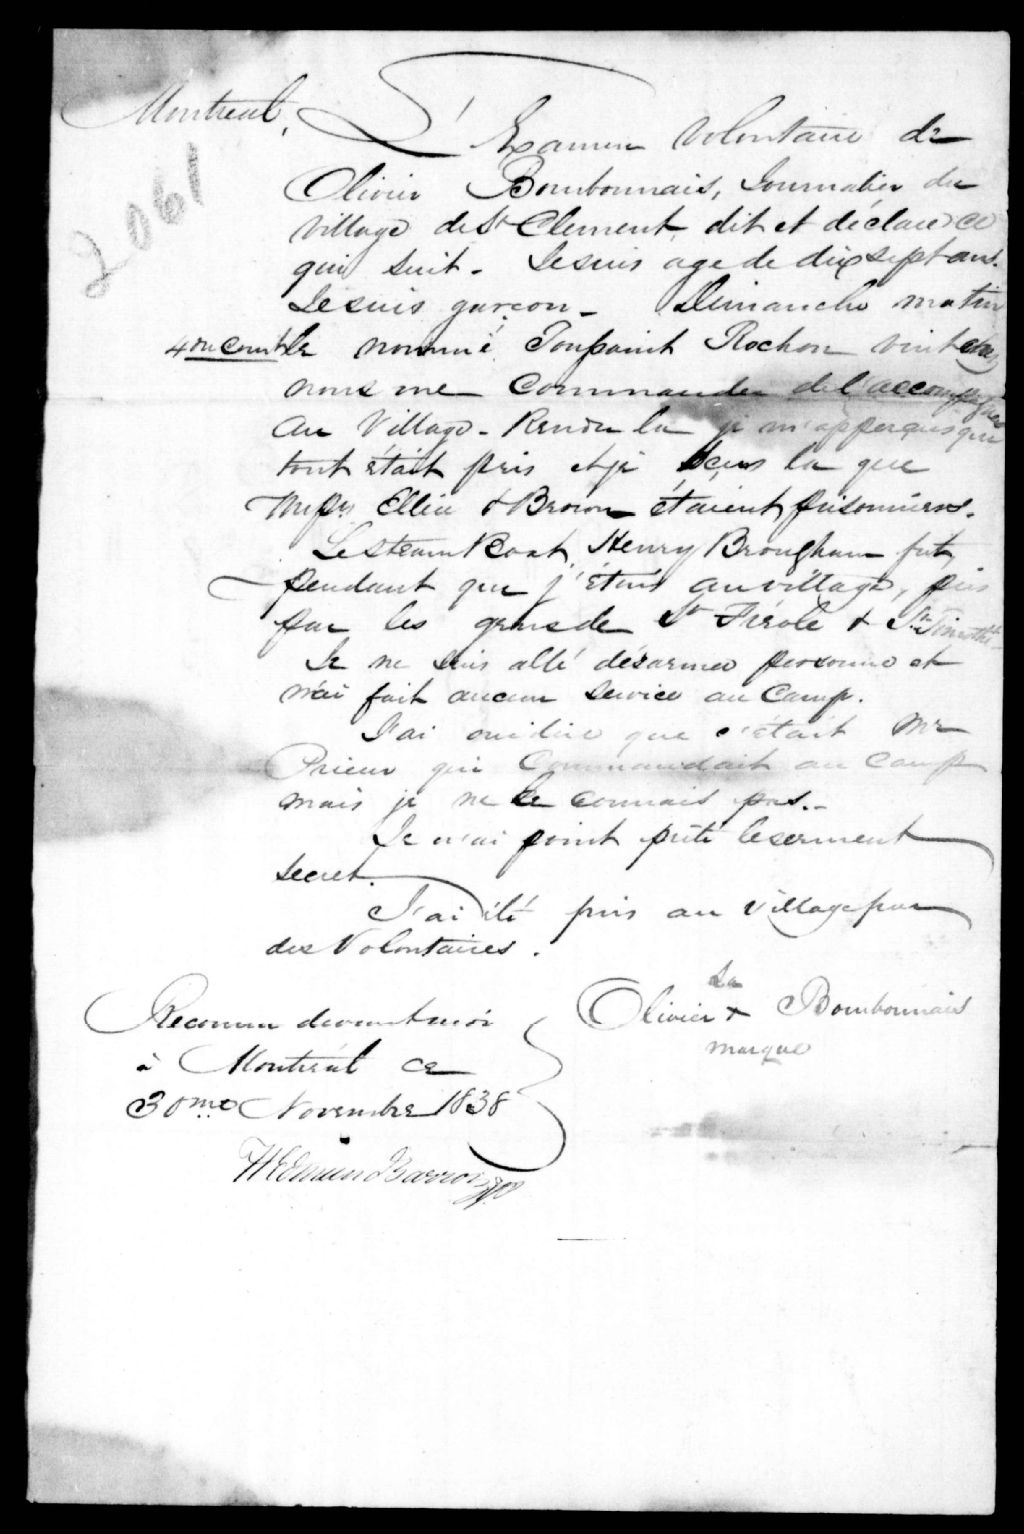 Montreal,
L'Examen Volontaire de
Olivier Bourbonnais, Journalier du
Village de St Clement, dit et déclare ce
qui suit - Je suis age de dix sept ans.
Je suis garçon - Dimanche matin
4 du Court le nommé Toussaint Rochon vint chez
nous me Commander de l'accompagner
au Village - Rendu la je m'apperçus que
tout était pris et je sçus la que
Messrs Ellice & Brown étaient prisonniers.
Le Steam Boat Henry Brougham fut,
pendant que j'étais au village, pris
par les gens de St Férole & St Timothé
Je ne suis allé désarmer personne et
n'ai fait aucun service au Camp.
J'ai oui dire que c'était Mr
Prieur qui Commandait au Camp
mais je ne le connais pas. -
Je n'ai point prêté le serment
secret.
J'ai été pris au Village par
des Volontaires.
sa
Olivier + Bourbonnais
marque
Reconnu devant moi
à Montréal ce
30me Novembre 1838
2061